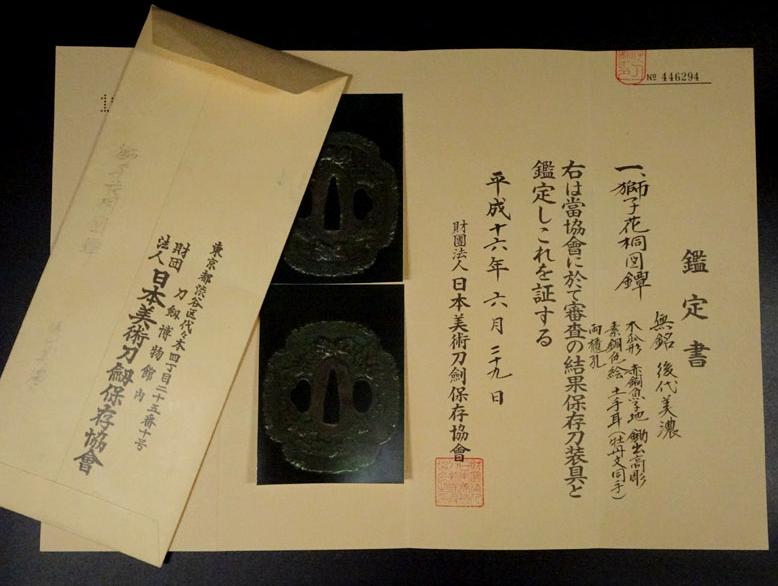 № 446294
鑑定書
一、獅子花桐図鐔
無銘 後代美濃
木瓜形 赤銅魚子地 鋤出高彫
素銅色絵 土手耳(牡丹文同手)
両櫃孔
右は當協會に於て審査の結果保存刀装具と
鑑定しこれを証する
平成十六年六月二十九日
財團法人 日本美術刀劍保存協會
東京都渋谷区代々木四丁目二十五番十号
財団法人 刀剱博物館内
日本美術刀劍保存協會
獅子花桐図鐔